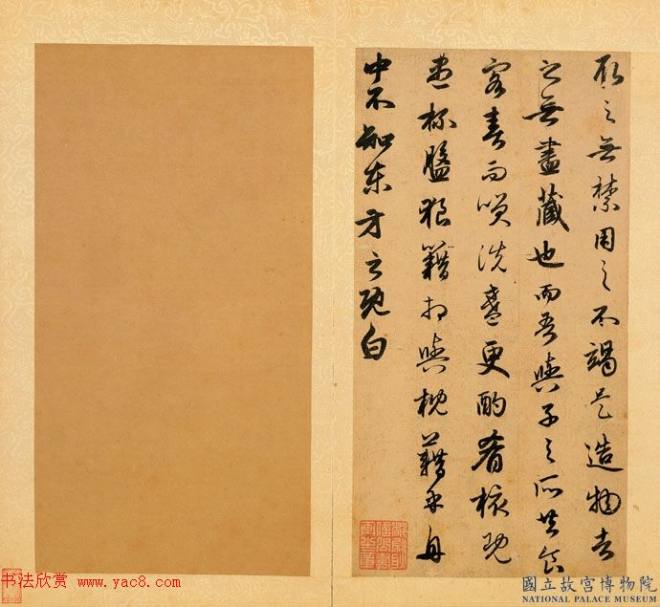 取之無禁用之不竭是造物者
之無盡藏也而吾與子之所共食
客喜而笑洗盞更酌肴核既
盡杯盤狼籍相與枕藉乎舟
中不知東方之既白
书法欣赏 www.yac8.com
國立故宮博物院
NATIONAL PALACE MUSEUM